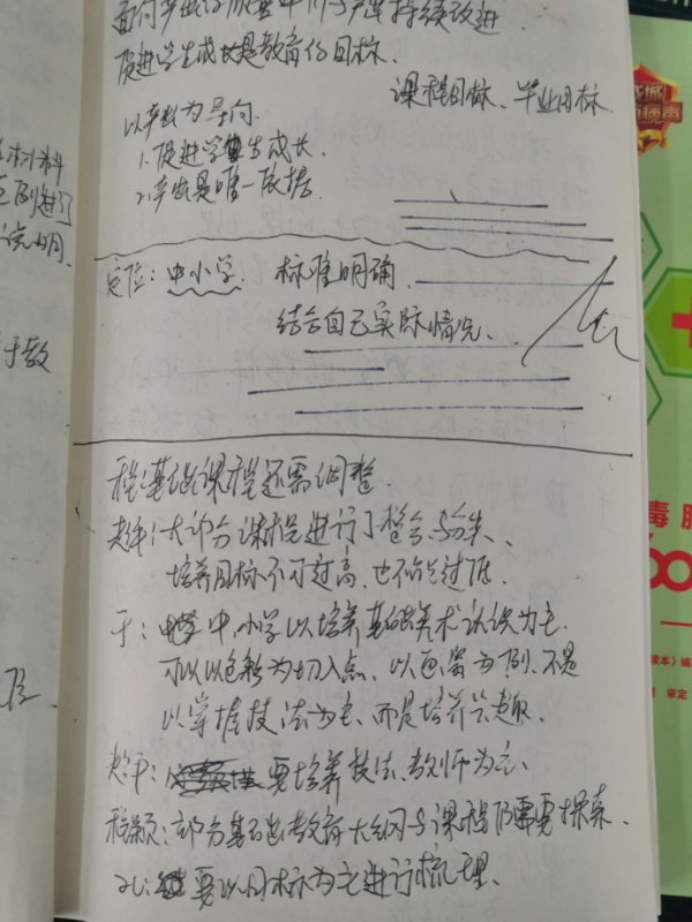 面向产出的
持续改进
促进学生成长是教育的目标.
课程目标、毕业目标
以产出为导向.
1.促进学生成长.
2.产出是唯一依据
材料
说明.
于教
定位:中小学. 标准明确.
结合自己实际情况、
程:基础课程还需调整
赵平:大部分课程进行了整合与分类、
培养目标不可过高,也不能过低.
于:中小学以培养基础美术认识为主.
可以以色彩为切入点、以画画为例、不是
以掌握技法为主、而是培养兴趣.
赵平:要培养技法、教师为主、
程颖:部分基础教育大纲与课程仍需要探索.
要以目标为主进行梳理、
毒
读本》编
审定